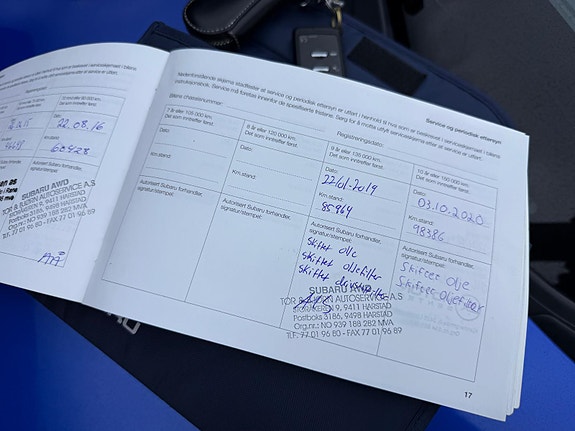 22.08.16
60428
SUBARU AWD
TOR & BJØRN AUTOSERVICE A.S
9411 HARSTAD
Postboks 3186, 9498 HARSTAD
Org.nr.: NO 939 188 282 MVA
TLF. 77 01 96 80 - FAX 77 01 96 89
Service og periodisk ettersyn
Nedenforstående skjema stadfester at service og periodisk ettersyn er utført i henhold til hva som er beskrevet i servicekjemaet i bilens
instruksjonsbok. Service må foretas innenfor de spesifiserte fristene. Sørg for å motta utfylt serviceskjema etter at service er utført.
Bilens chassisnummer:
Registreringsdato:
7 år eller 105 000 km.
Det som inntreffer først.
Dato:
Km.stand:
Autorisert Subaru forhandler,
signatur/stempel:
8 år eller 120 000 km.
Det som inntreffer først.
Dato:
Km.stand:
Autorisert Subaru forhandler,
signatur/stempel:
9 år eller 135 000 km.
Det som inntreffer først.
Dato:
22/01-2019
Km.stand:
85964
Autorisert Subaru forhandler,
signatur/stempel:
Skiftet olje
skiftet oljefilter
skiftet
SUBARU AWD
TOR & BJØRN AUTOSERVICE A.S
9, 9411 HARSTAD
Postboks 3186, 9498 HARSTAD
Org.nr.: NO 939 188 282 MVA
TLF. 77 01 96 80 - FAX 77 01 96 89
10 år eller 150 000 km.
Det som inntreffer først.
Dato:
03.10.2020
Km.stand:
98386
Autorisert Subaru forhandler,
signatur/stempel:
Skiftet olje
Skiftet oljefilter
17